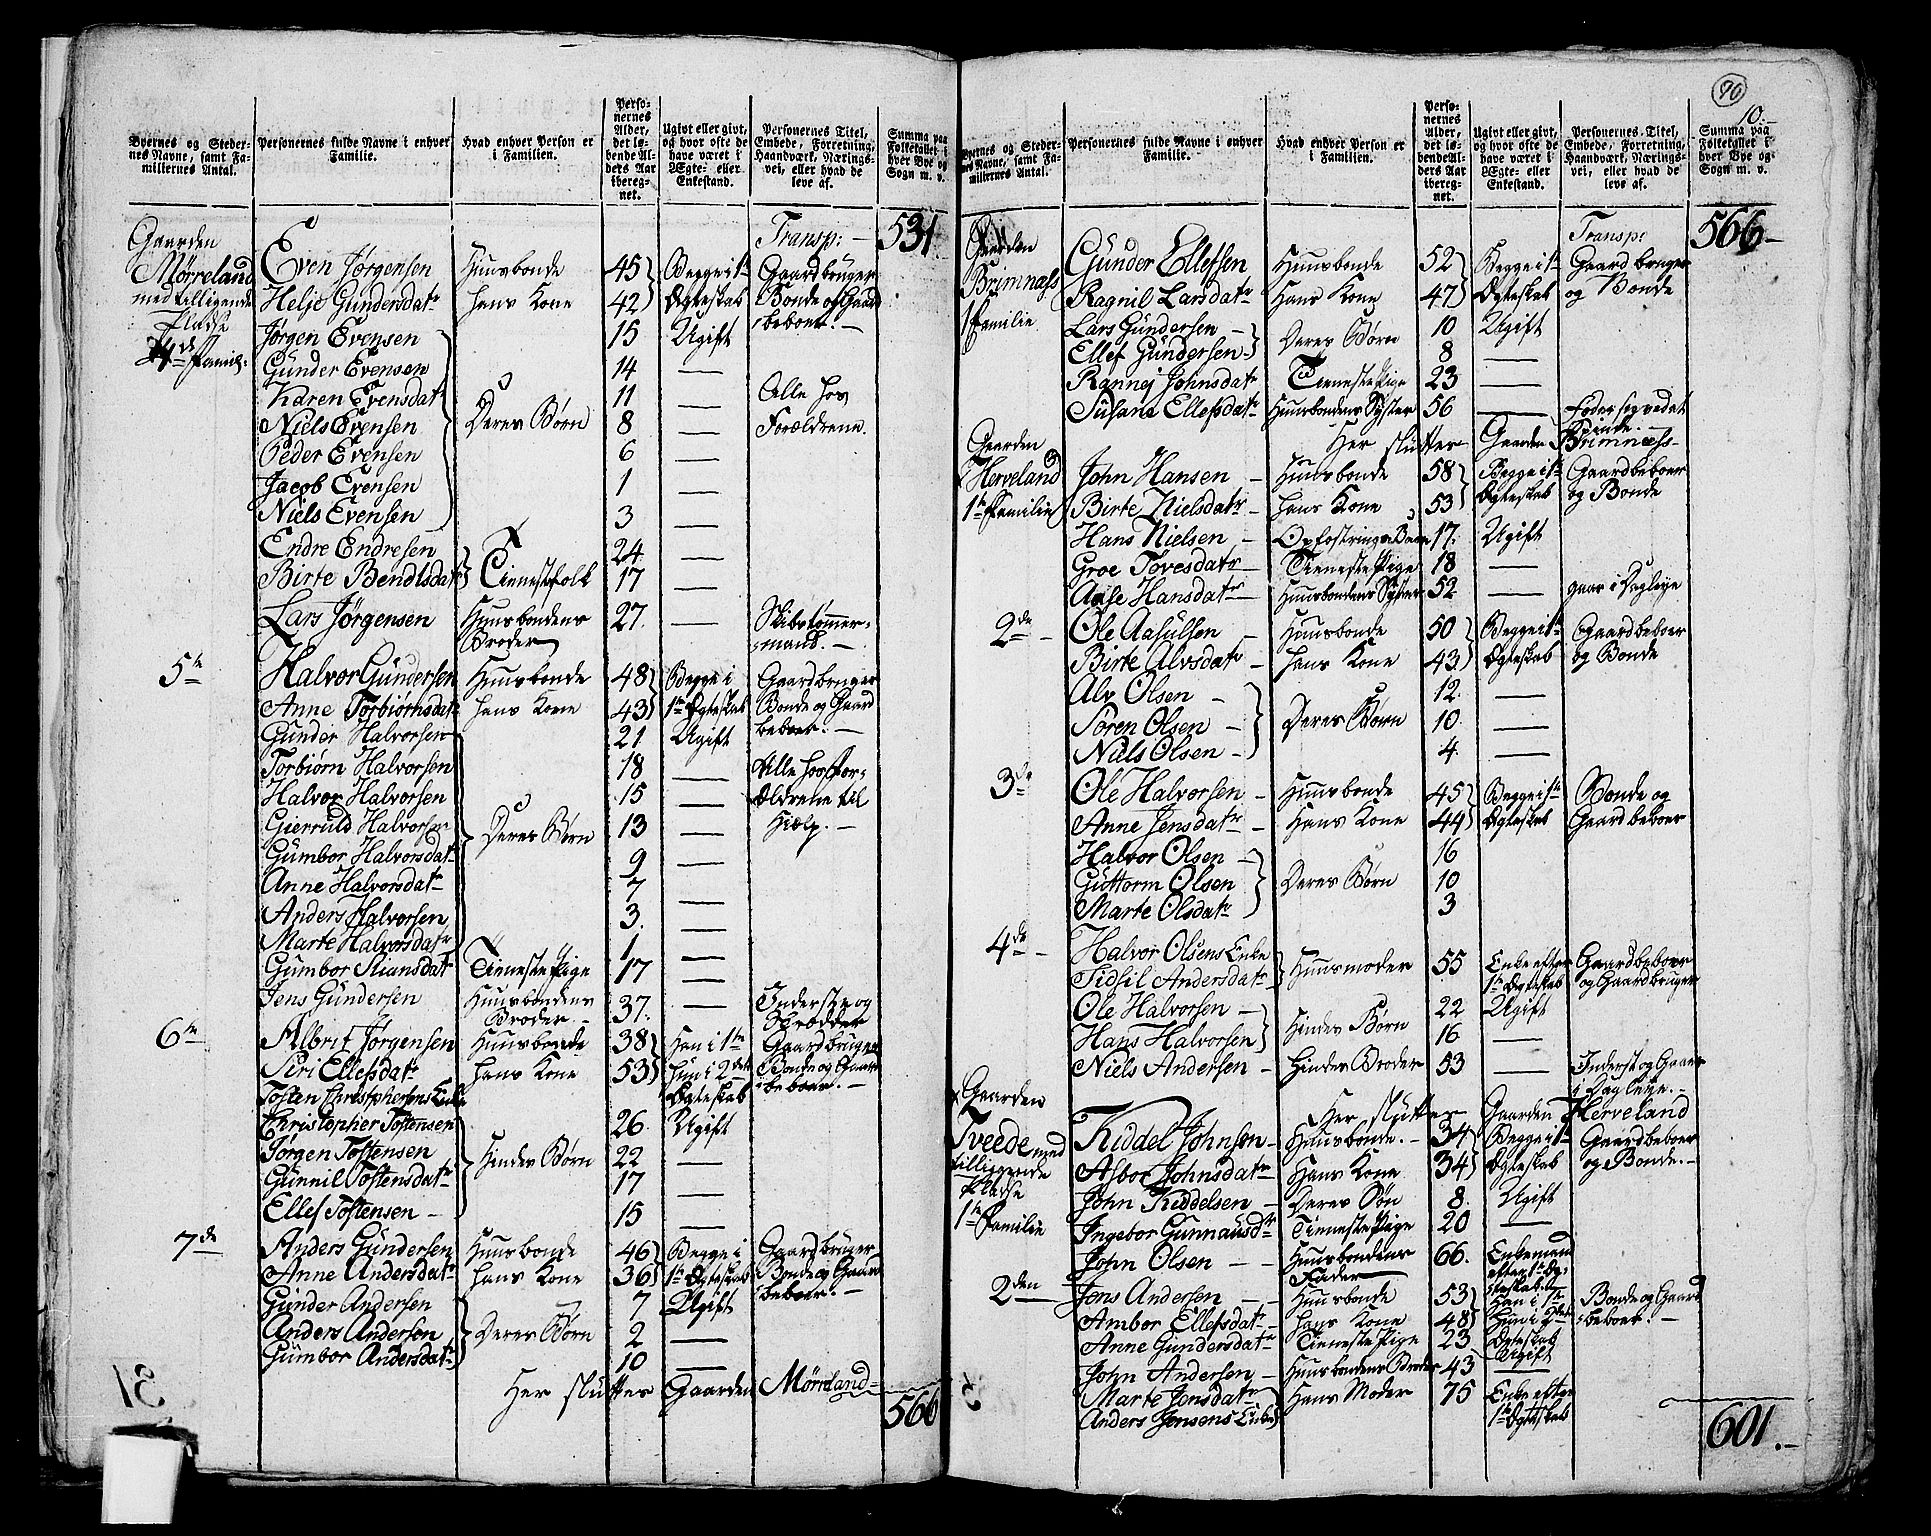 Byernes og Steder-
nes Navne, samt Fa-
miliernes Antal.
Personernes fulde Navne i enhver
Familie.
Hvad enhver Person er
i Familien.
Perso-
nernes
Alder,
det lø-
bende Al-
ders Aar
ibereg-
net.
Ugivt eller givt,
og hvor ofte de
have været i
Ægte- eller
Enkestand.
Personernes Titel,
Embede, Forretning,
Haandværk, Nærings-
vei, eller hvad de
leve af.
Summa paa
Folketallet i
hver Bye og
Sogn m. v.
Transp: — 531
Gaarden
Mørreland
med tilligende
Pladse
4de Famil:
Even Jørgensen Huusbonde 45 Begge i 1te Gaardbruger
Helje Gundersdatr hans Kone 42 Ægteskab Bonde og Gaard
beboer. —
Jørgen Evensen 15 Ugift
Gunder Evensen 14 —
Karen Evensdatr 11 — Alle hos
Niels Evensen Deres Børn 8 — Forældrene.
Peder Evensen 6 —
Jacob Evensen 1 —
Niels Evensen 3 —
Endre Endresen 24 —
Birte Bendtsdatr Tienestefolk 17 —
Lars Jørgensen Huusbondens 27. — Skibstømmer-
Broder mand. —
5te Halvor Gundersen Huusbonde 48 Begge i Gaardbruger
Anne Torbiørnsdatr hans Kone 43 1te Ægteskab Bonde og Gaard
Gunder Halvorsen 21 Ugift beboer. —
Torbiørn Halvorsen 18 — Alle hos For-
Halvor Halvorsen 15 — ældrene til
Gierruld Halvorsen Deres Børn 13 — Hielp. —
Gumbor Halvorsdatr 9 —
Anne Halvorsdatr 7 —
Anders Halvorsen 3. —
Marte Halvorsdatr 1 —
Gumbor Stiansdatr Tieneste Pige 17 —
Jens Gundersen Huusbondens 37. — Inderste og
Broder — Skrædder
6te Albrit Jørgensen Huusbonde 38 Han i 1te Gaardbruger
Siri Ellefsdatr hans Kone 53 Hun i 2det Bonde og Gaard
Tosten Christophersens Enke Ægteskab beboer. —
Christopher Tostensen 26 Ugift
Jørgen Tostensen Hindes Børn 22 —
Gunnil Tostensdatr 17 —
Ellef Tostensen — 15 —
7de Anders Gundersen Huusbonde 46 Begge i Gaardbruger
Anne Andersdatr hans Kone 36 1te Ægteskab Bonde og Gaard
Gunder Andersen 7 Ugift beboer. —
Anders Andersen Deres Børn 2 —
Gumbor Andersdatr 10 —
Her slutter Gaarden Mørreland
566
90
10.
Byernes og Steder-
nes Navne, samt Fa-
miliernes Antal.
Personernes fulde Navne i enhver
Familie.
Hvad enhver Person er
i Familien.
Perso-
nernes
Alder,
det lø-
bende Al-
ders Aar
ibereg-
net.
Ugivt eller givt,
og hvor ofte de
have været i
Ægte- eller
Enkestand.
Personernes Titel,
Embede, Forretning,
Haandværk, Nærings-
vei, eller hvad de
leve af.
Summa paa
Folketallet i
hver Bye og
Sogn m. v.
Transp: 566 —
Gaarden
Brimnæss
1 Familie
Gunder Ellefsen Huusbonde 52 Begge i 1te Gaardbruger
Ragnil Larsdatr Hans Kone 47 Ægteskab og Bonde
Lars Gundersen — Deres Børn 10 Ugift
Ellef Gundersen — 8 —
Rannej Johnsdatr Tieneste Pige 23 —
Susane Ellefsdatr Huusbondens Syster 56 — føder seg ved at
Spinde. —
Her slutter Gaarden Brimness —
Gaarden
Herveland
1te Familie
John Hansen — Huusbonde 58 Begge i 1te Gaardbeboer
Birte Nielsdatr — hans Kone 53 Ægteskab og Bonde
Hans Nielsen — Opfostrings Barn 17. Ugift
Groe Tovesdatr — Tieneste Pige 18 —
Aase Hansdatr — Huusbondens Syster 52 — gaar i Dagleje
2de Ole Aasulsen — Huusbonde 50 Begge i 1te Gaardbeboer
Birte Alvsdatr — hans Kone 43 Ægteskab og Bonde
Alv Olsen — 12. —
Søren Olsen — Deres Børn 10. —
Niels Olsen — 4. —
3de Ole Halvorsen — Huusbonde 45 Begge i 1te Bonde og
Anne Jensdatr — Hans Kone 44 Ægteskab Gaardbeboer
Halvor Olsen — 16
Guttorm Olsen Deres Børn 10
Marte Olsdatr 3
4de — Halvor Olsens Enke
Sidsil Andersdatr Huusmoder 55 Enke efter Gaardbeboer
1te Ægteskab og Gaardbruger
Ole Halvorsen — 22 Ugift
Hans Halvorsen Hindes Børn 16 —
Niels Andersen — Hindes Broder 53 — Inderst og Gaaer
i Dagleie. —
Her slutter Gaarden Herveland
Gaarden
Tveede med
tilliggende
Pladse
1te Familie
Kiddel Johnsen — Huusbonde. — 34 Begge i 1te Gaardbeboer
Asbor Johnsdatr Hans Kone 34 Ægteskab og Bonde. —
John Kiddelsen — Deres Søn 8. Ugift
Ingebor Gunnausdtr Tieneste Pige 20 —
John Olsen — — Huusbondens 66. Enkemand
Fader efter 1te Æg-
teskab
2den Jons Andersen — Huusbonde 53 Han i 1te Bonde og Gaard
Ambor Ellefsdatr — hans Kone 48 Hun i 2det beboer. —
Anne Gundersdatr Tieneste Pige 23 Ægteskab
Ugift
John Andersen — Huusbondens Broder 43 —
Marte Jonsdatr Hans Moder 75 Enke efter
Anders Jensens Enke 1te Ægteskab
601. —